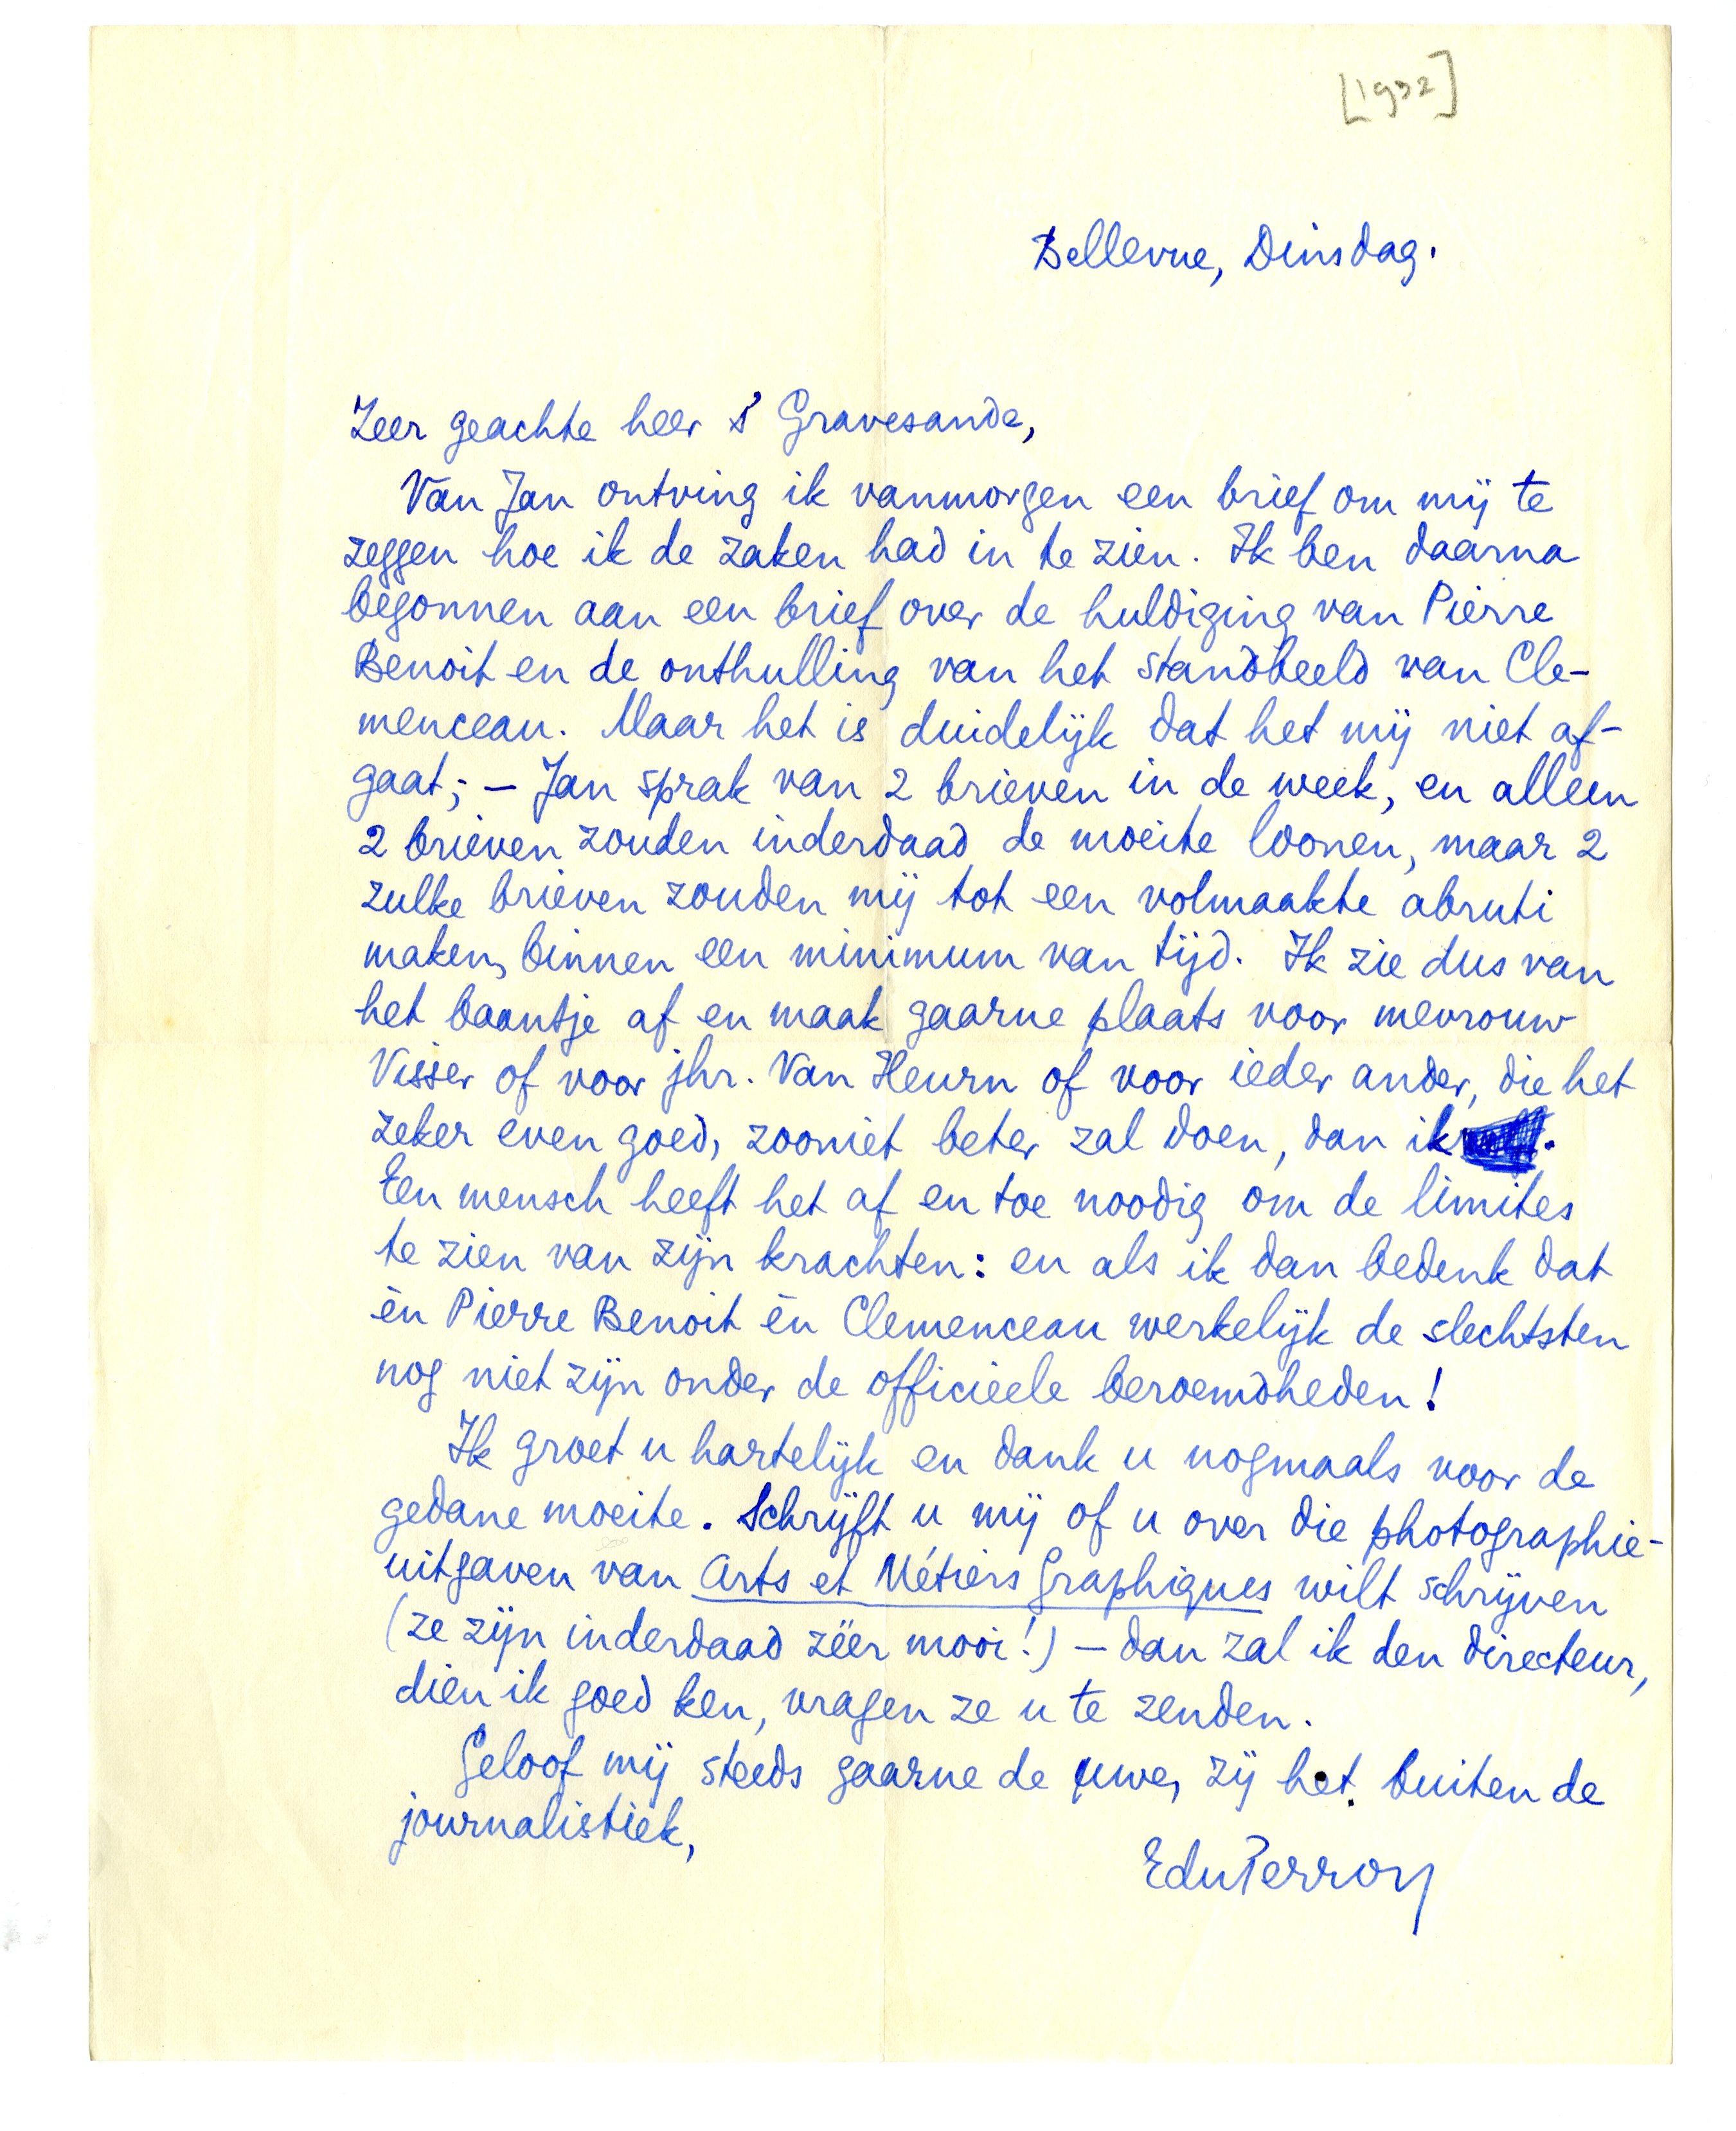 [1932]
Bellevue, Dinsdag.
Zeer geachte heer 's Gravesande,
Van Jan ontving ik vanmorgen een brief om mij te
zeggen hoe ik de zaken had in te zien. Ik ben daarna
begonnen aan een brief over de huldiging van Pierre
Benoit en de onthulling van het standbeeld van Cle-
menceau. Maar het is duidelijk dat het mij niet af-
gaat; – Jan sprak van 2 brieven in de week, en alleen
2 brieven zouden inderdaad de moeite loonen, maar 2
zulke brieven zouden mij tot een volmaakte abruti
maken, binnen een minimum van tijd. Ik zie dus van
het baantje af en maak gaarne plaats voor mevrouw
Visser of voor jhr. Van Heurn of voor ieder ander, die het
zeker even goed, zooniet beter zal doen, dan ik.
Een mensch heeft het af en toe noodig om de limites
te zien van zijn krachten: en als ik dan bedenk dat
èn Pierre Benoit èn Clemenceau werkelijk de slechtsten
nog niet zijn onder de officieele beroemdheden!
Ik groet u hartelijk en dank u nogmaals voor de
gedane moeite. Schrijft u mij of u over die photographie-
uitgaven van Arts et Métiers Graphiques wilt schrijven
(ze zijn inderdaad zéér mooi!) – dan zal ik den directeur,
dien ik goed ken, vragen ze u te zenden.
Geloof mij steeds gaarne de uwe, zij het buiten de
journalistiek,
EduPerron